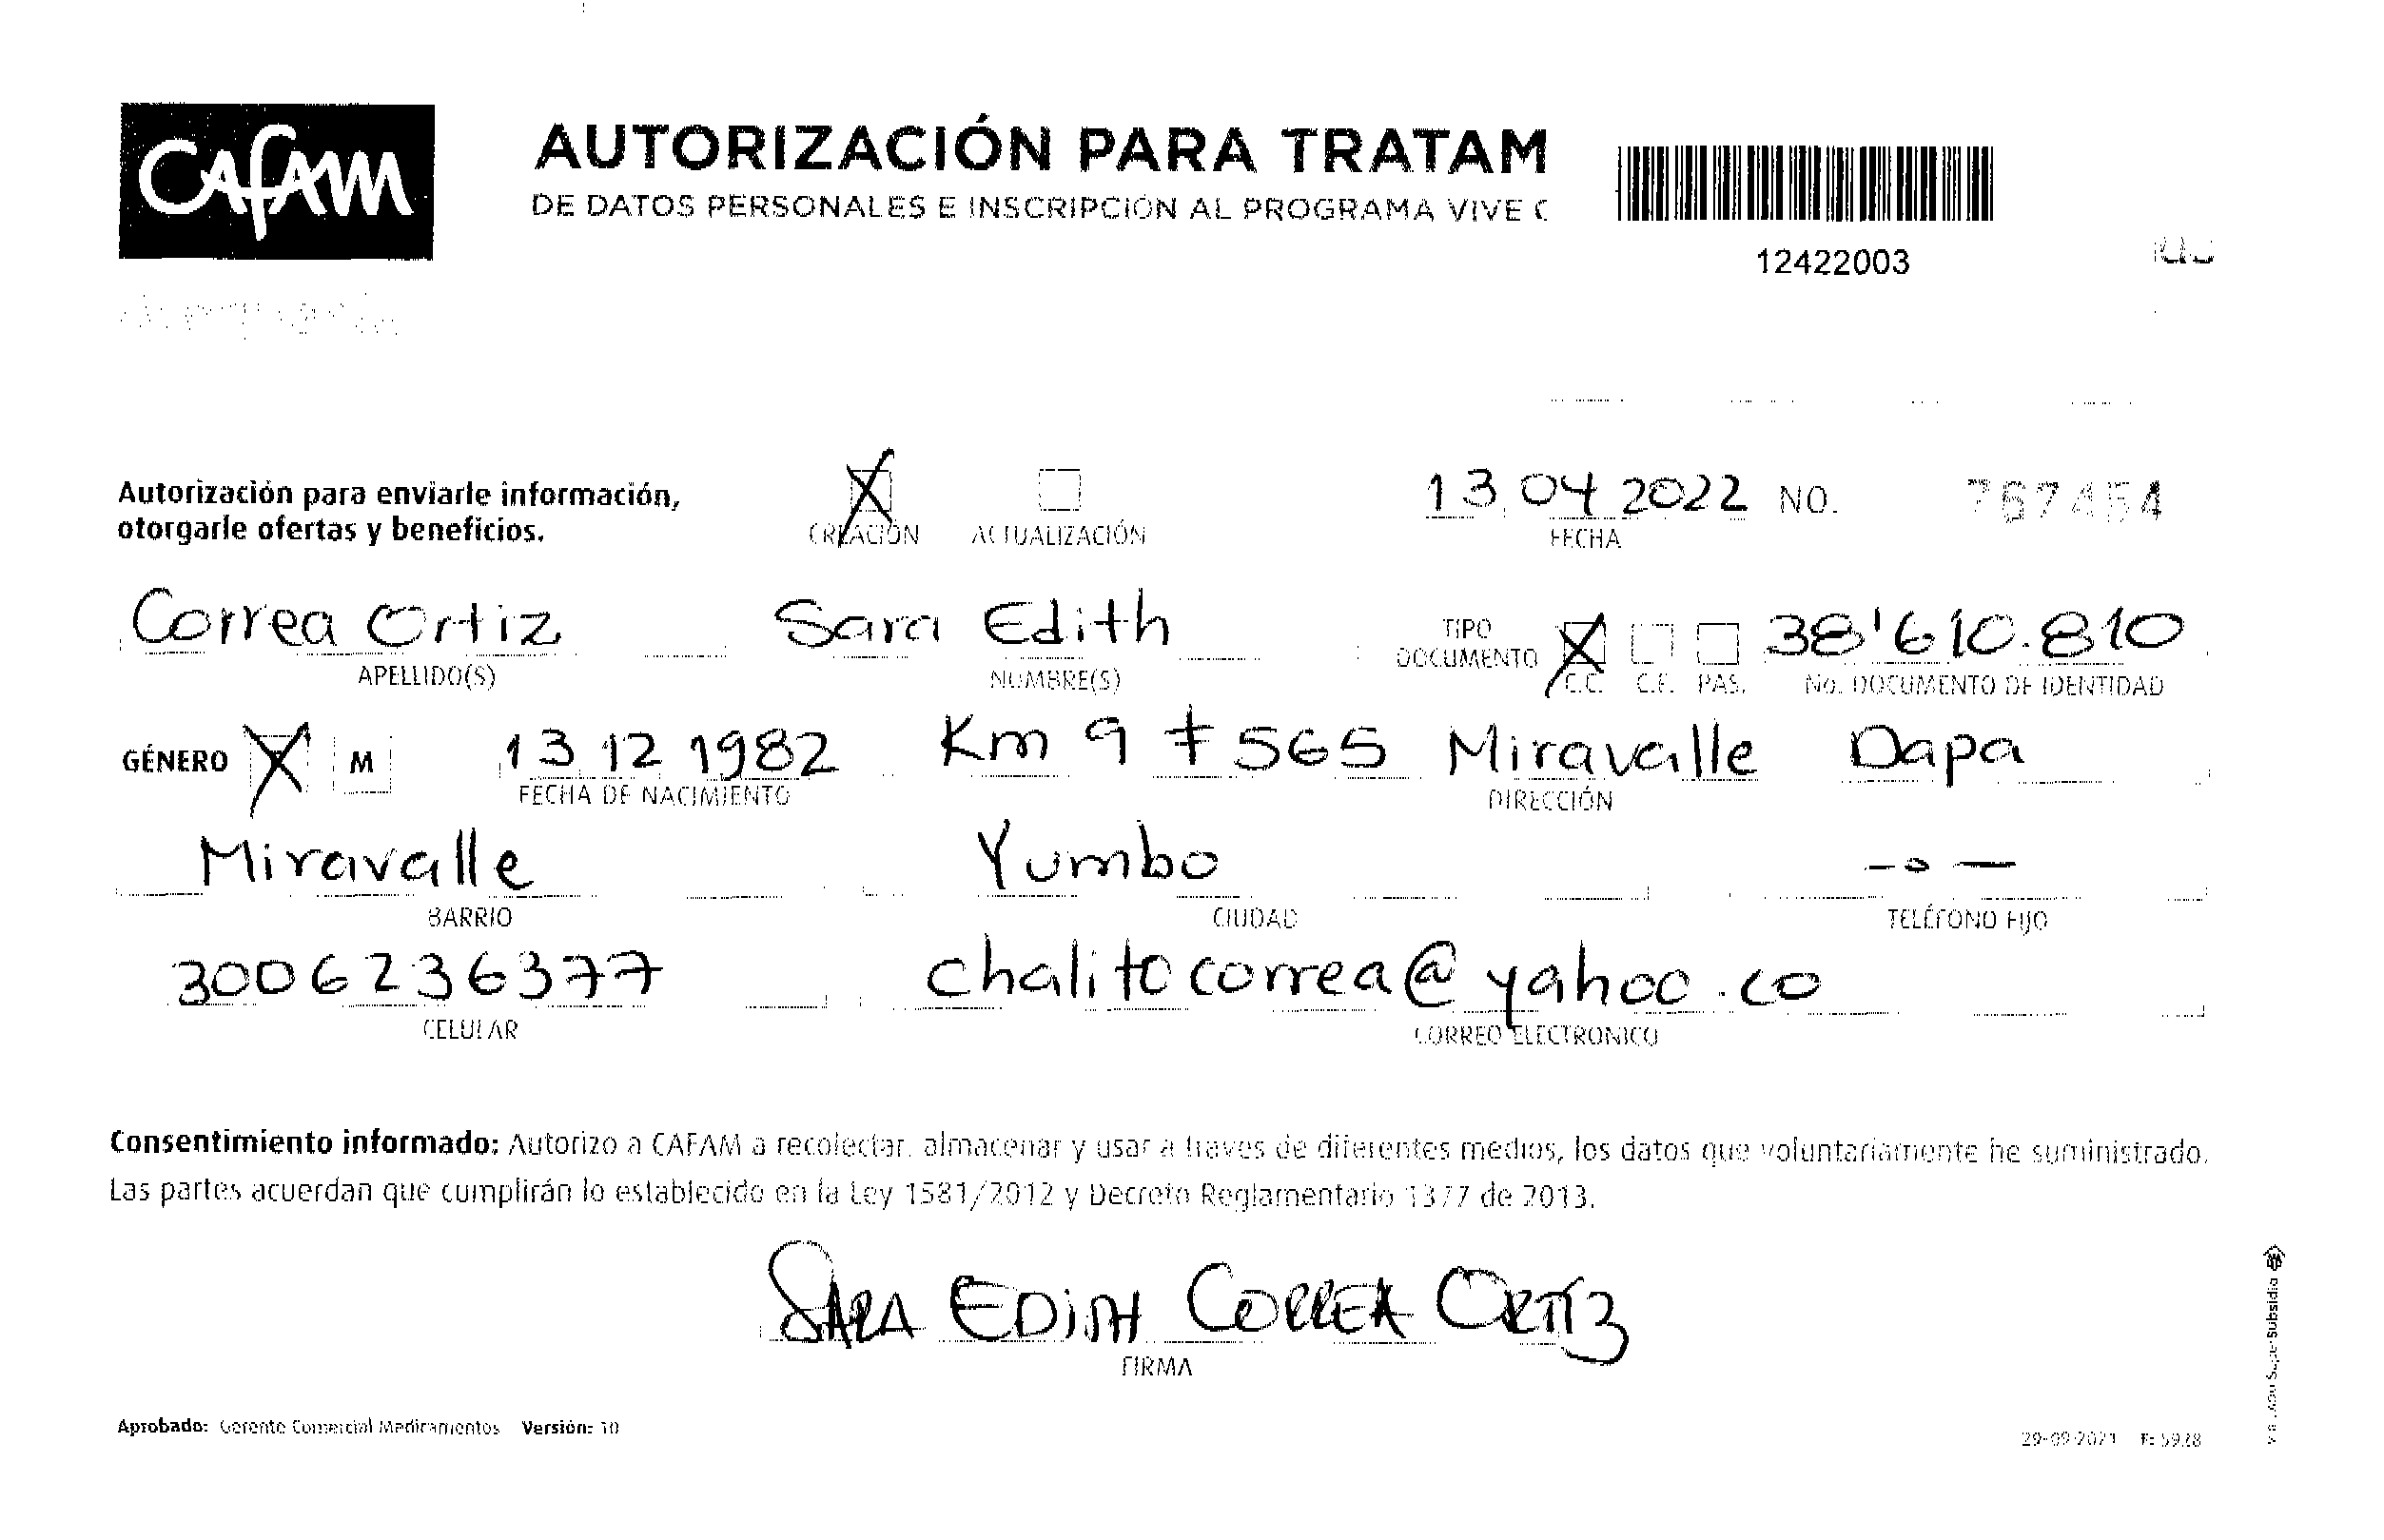 CAFAM
AUTORIZACIÓN PARA TRATAM
DE DATOS PERSONALES E INSCRIPCIÓN AL PROGRAMA VIVE C
12422003
Autorización para enviarle información,
otorgarle ofertas y beneficios.
CREACIÓN ACTUALIZACIÓN
13 04 2022 NO. 767454
FECHA
Correa Ortiz Sara Edith TIPO DOCUMENTO 38'610.810
APELLIDO(S) NOMBRE(S) C.C. C.E. PAS. No. DOCUMENTO DE IDENTIDAD
GÉNERO F M 13 12 1982 Km 9 # 565 Miravalle Dapa
FECHA DE NACIMIENTO DIRECCIÓN
Miravalle Yumbo -o-
BARRIO CIUDAD TELÉFONO FIJO
3006236377 chalitocorrea@yahoo.co
CELULAR CORREO ELECTRONICO
Consentimiento informado: Autorizo a CAFAM a recolectar, almacenar y usar a traves de diferentes medios, los datos que voluntariamente he suministrado.
Las partes acuerdan que cumplirán lo establecido en la Ley 1581/2012 y Decreto Reglamentario 1377 de 2013.
SARA EDITH CORREA ORTIZ
FIRMA
Aprobado: Gerente Comercial Medicamentos Versión: 10
29-09-2021